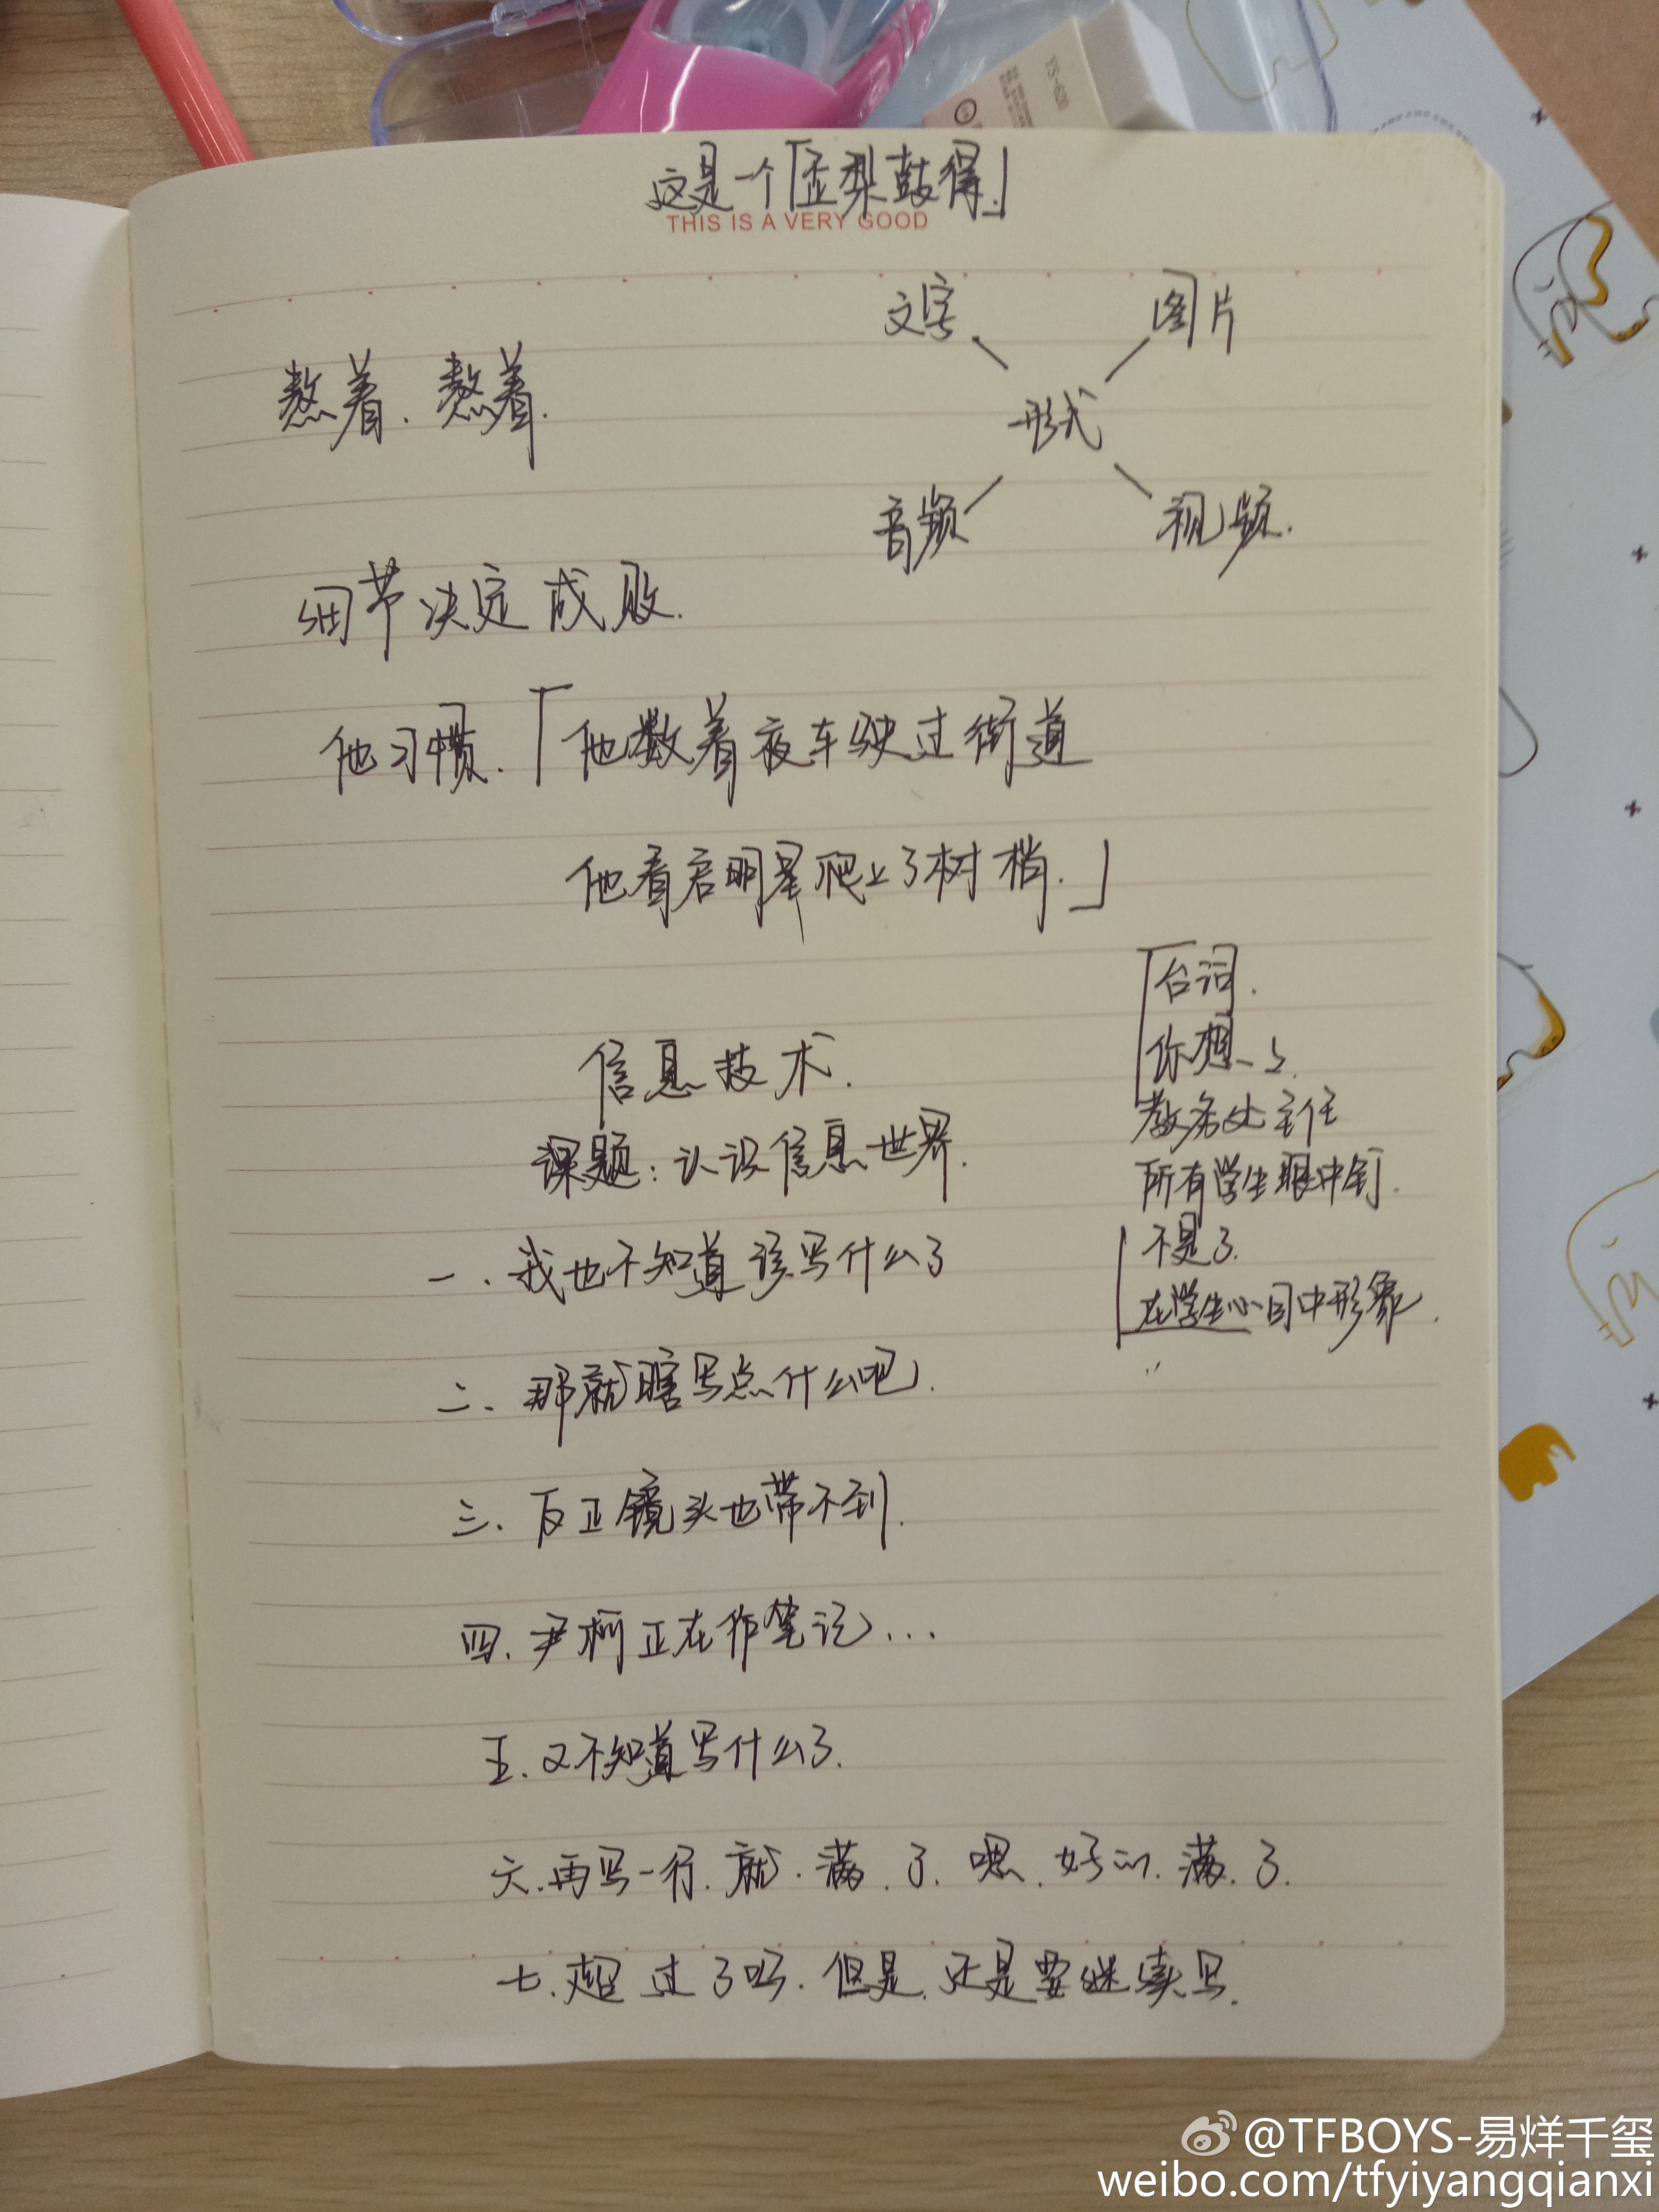 YS-620
这是一个「歪梨鼓得」
THIS IS A VERY GOOD
文字 图片
形式
音频 视频.
熬着. 熬着.
细节决定成败.
他习惯.「他数着夜车驶过街道
他看启明星爬上了树梢.」
信息技术.
课题:认识信息世界.
一、我也不知道该写什么了
二、那就瞎写点什么吧.
三、反正镜头也带不到.
四.尹柯正在作笔记...
五.又不知道写什么了.
六.再写一行.就.满.了.嗯.好的.满.了.
七.超过了吗.但是.还是要继续写.
台词.
你想
教务处主任
所有学生眼中钉.
不是了.
在学生心目中形象.
@TFBOYS-易烊千玺
weibo.com/tfyiyangqianxi